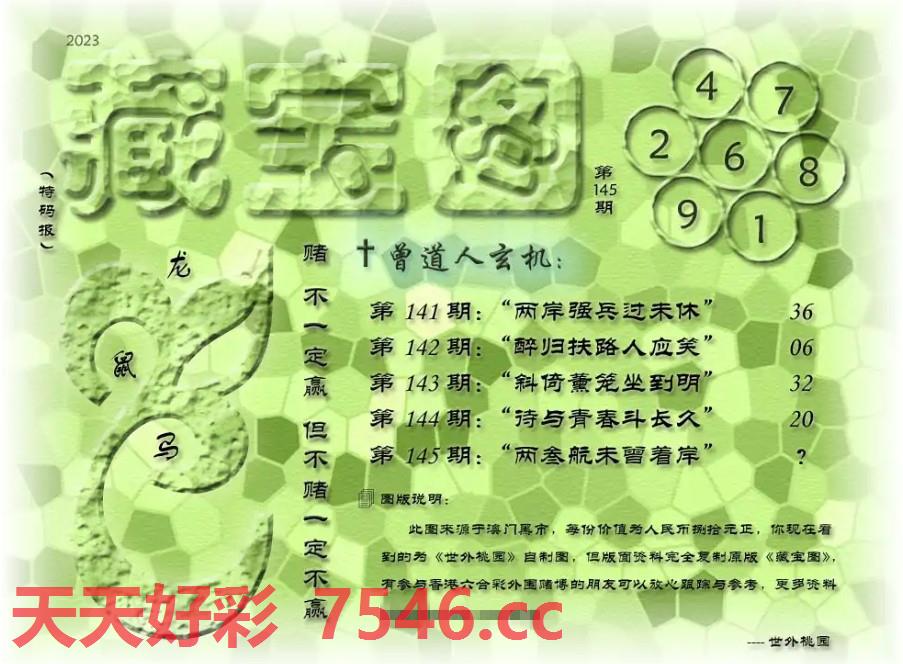 2023
藏宝图
(特码报)
第145期
4
7
2
6
8
9
1
龙
鼠
马
赌不一定赢 但不赌一定不赢
曾道人玄机：
第 141 期：“两岸强兵过未休” 36
第 142 期：“醉归扶路人应笑” 06
第 143 期：“斜倚薰笼坐到明” 32
第 144 期：“待与青春斗长久” 20
第 145 期：“两叁航未曾着岸” ?
图版说明：
此图来源于澳门黑市，每份价值为人民币捌拾元正，你现在看
到的为《世外桃园》自制图，但版面资料完全复制原版《藏宝图》，
有参与香港六合彩外围赌博的朋友可以放心跟踪与参考，更多资料
天天好彩 7546.cc
---- 世外桃园